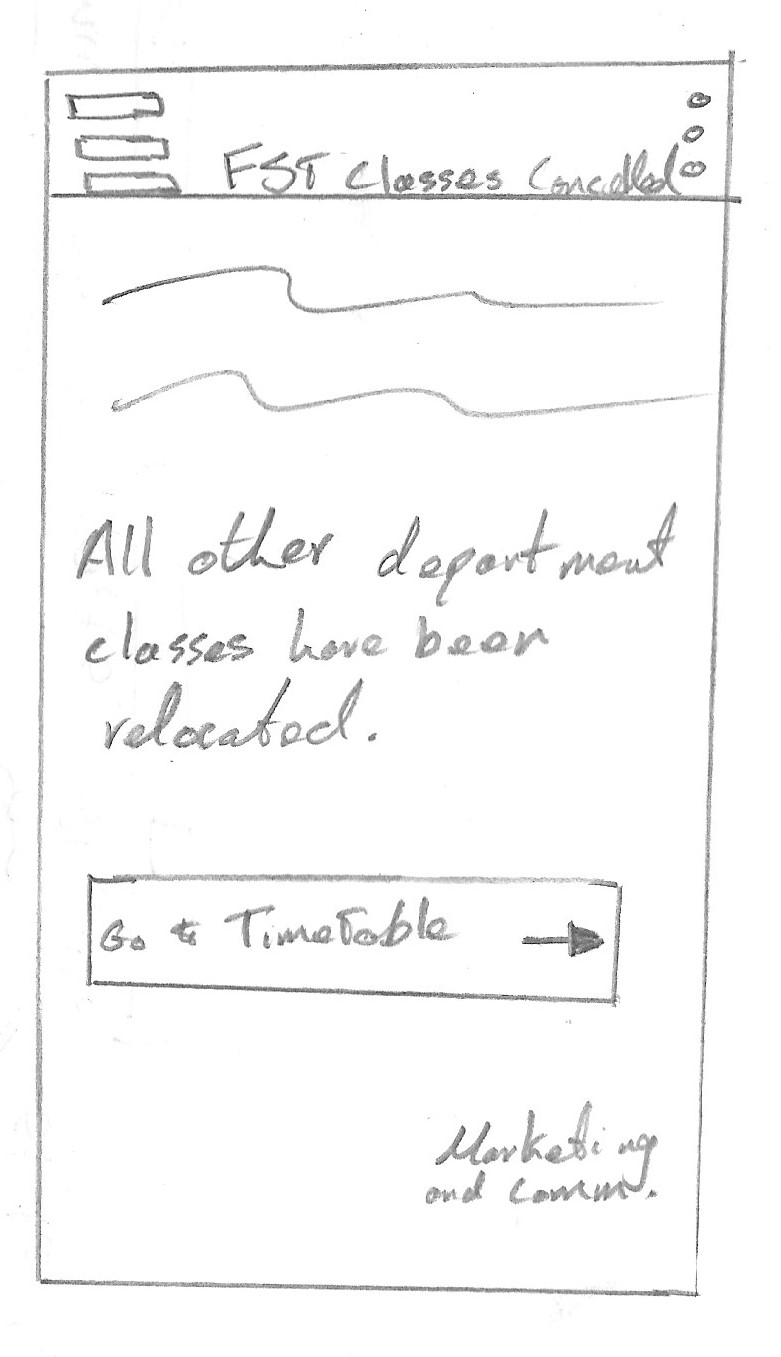 FST Classes Cancelled
All other department
classes have been
relocated.
Go to TimeTable
Marketing
and comm.